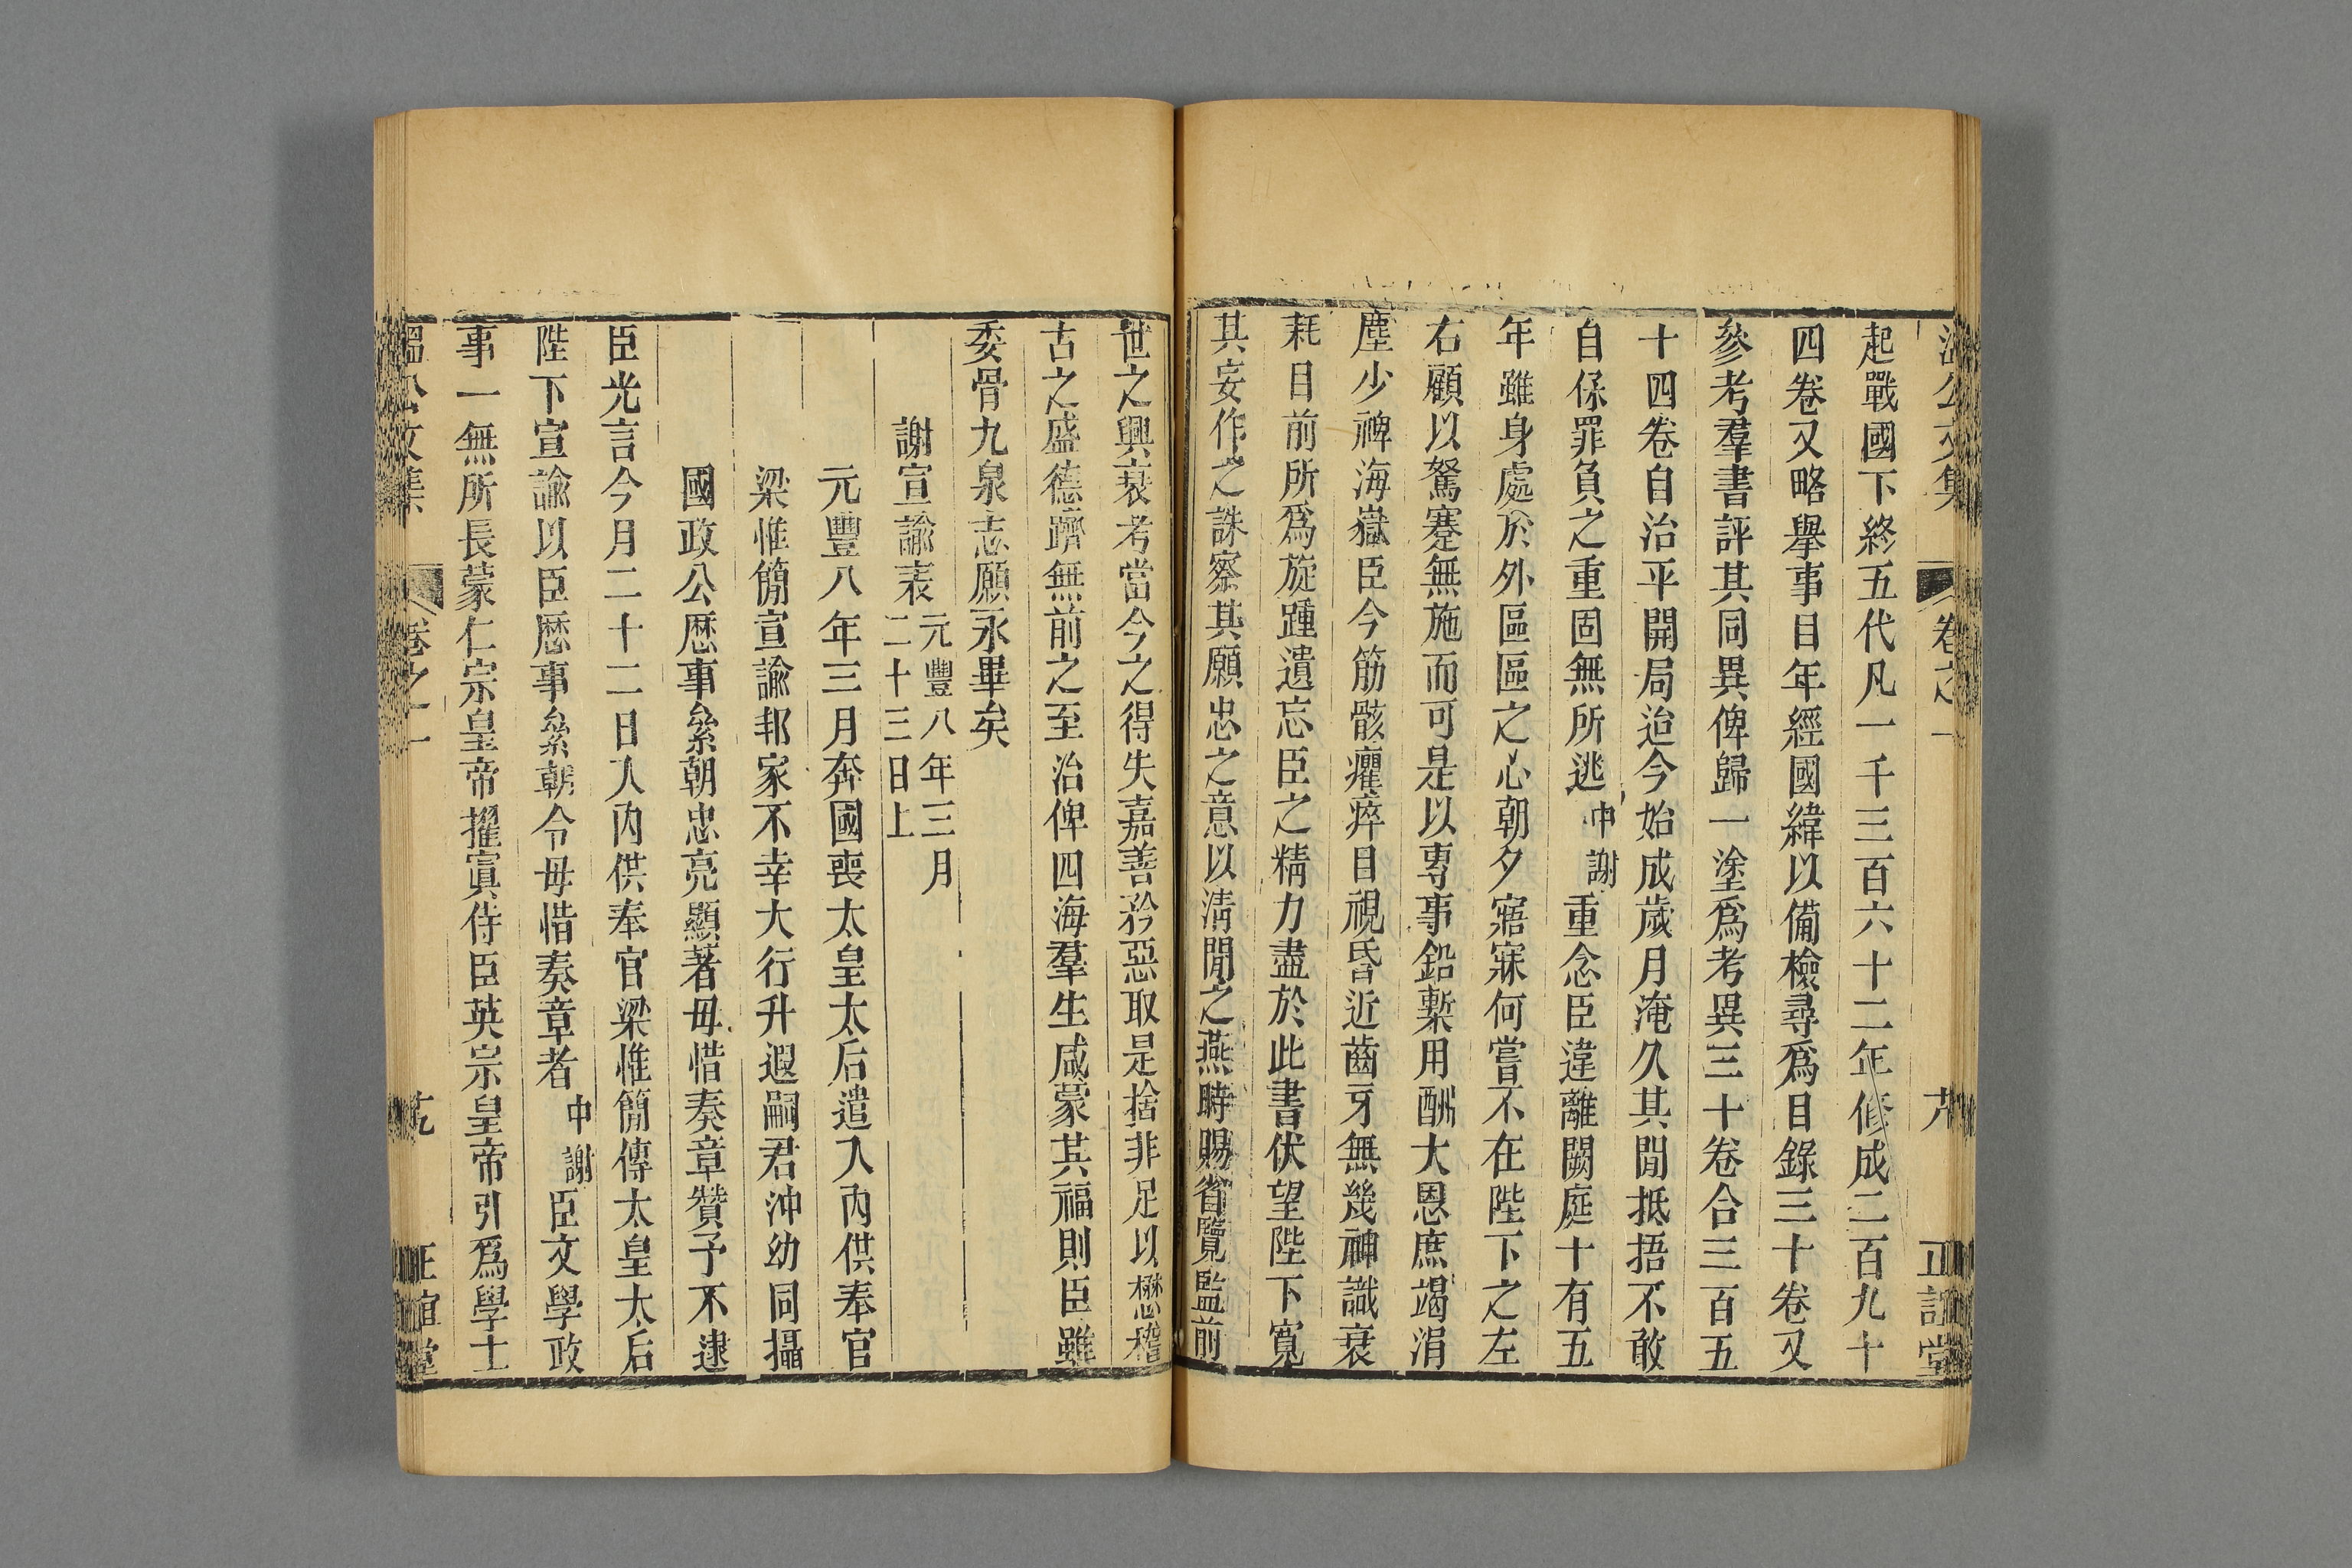 溫公文集 卷之一 正誼堂
起戰國下終五代凡一千三百六十二年修成二百九十
四卷又略舉事目年經國緯以備檢尋爲目錄三十卷又
參考羣書評其同異俾歸一塗爲考異三十卷合三百五
十四卷自治平開局迨今始成歲月淹久其閒抵捂不敢
自保罪負之重固無所逃中謝重念臣違離闕庭十有五
年雖身處於外區區之心朝夕寤寐何嘗不在陛下之左
右顧以駑蹇無施而可是以專事鉛槧用酬大恩庶竭涓
塵少裨海嶽臣今筋骸癯瘁目視昏近齒牙無幾神識衰
耗目前所爲旋踵遺忘臣之精力盡於此書伏望陛下寬
其妄作之誅察其願忠之意以淸閒之燕時賜省覽監前
世之興衰考當今之得失嘉善矜惡取是捨非足以懋稽
古之盛德躋無前之至治俾四海羣生咸蒙其福則臣雖
委骨九泉志願永畢矣
謝宣諭表元豐八年三月二十三日上
元豐八年三月奔國喪太皇太后遣入內供奉官
梁惟簡宣諭邦家不幸大行升遐嗣君沖幼同攝
國政公歷事絫朝忠亮顯著毋惜奏章贊予不逮
臣光言今月二十二日入內供奉官梁惟簡傳太皇太后
陛下宣諭以臣歷事絫朝令毋惜奏章者中謝臣文學政
事一無所長蒙仁宗皇帝擢寘侍臣英宗皇帝引爲學士
溫公文集 卷之一 正誼堂